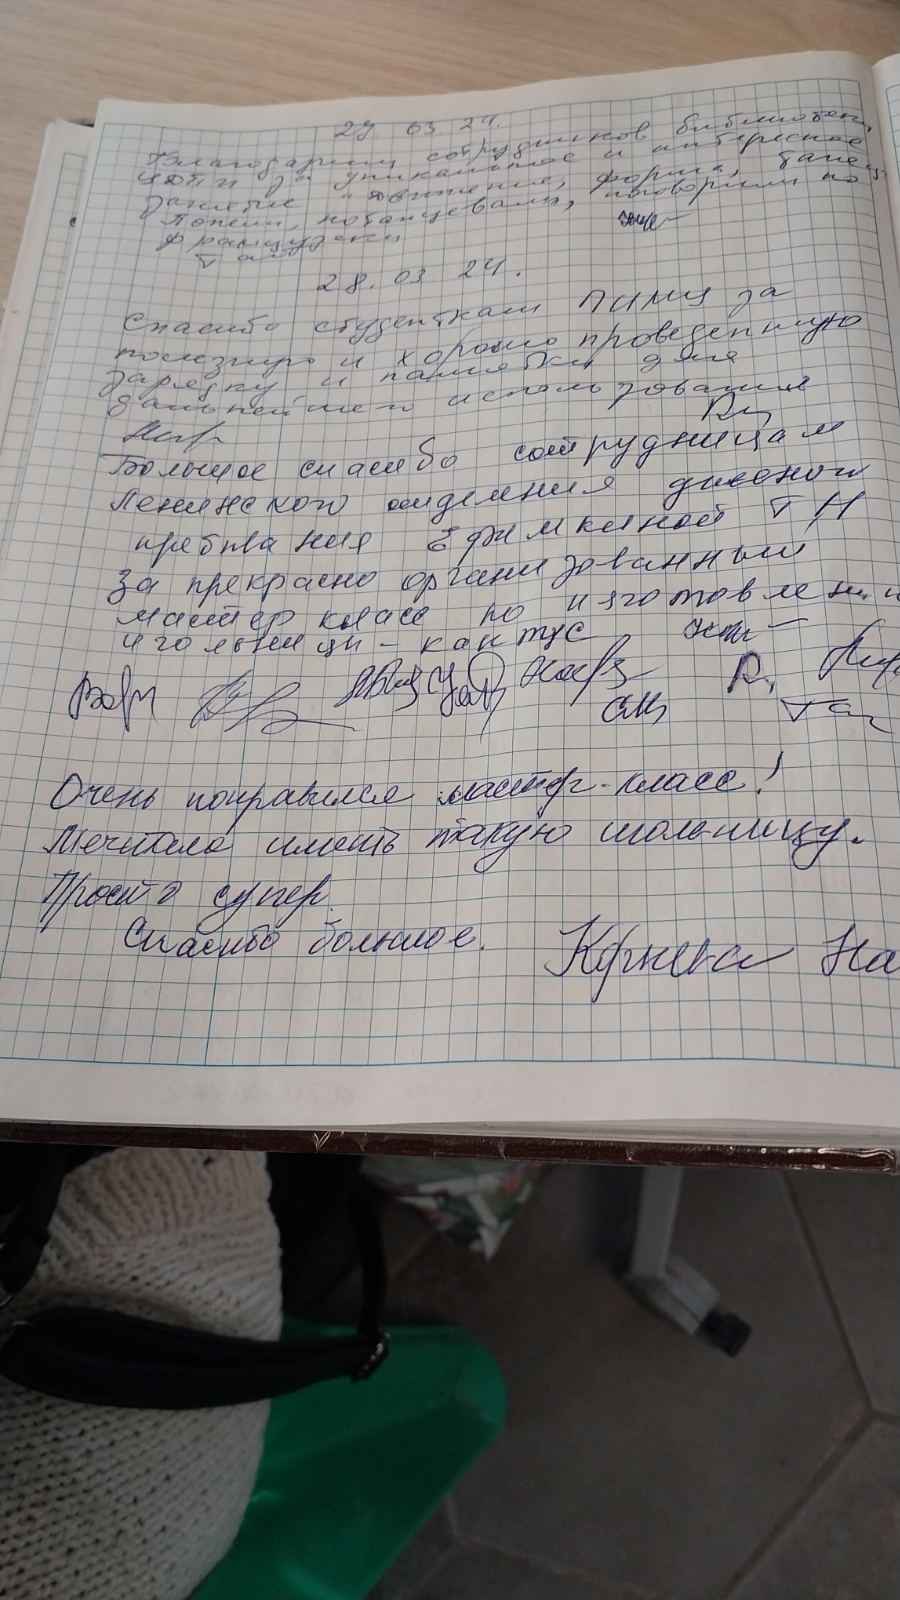 29 03 24.
Благодарим сотрудников библиотеки
за уникальное и интересное
занятие
Попели, потанцевали, поговорили по
французски
28. 03 24.
Спасибо студенткам за
полезную и хорошо проведенную
зарядку и памятки для
дальнейшего использования
Большое спасибо сотрудницам
Ленинского отделения дневного
пребывания Ефимкиной ТН
За прекрасно организованный
мастер класс по изготовлению
игольницы - кактус
Очень понравился мастер-класс!
Мечтала иметь такую игольницу.
Просто супер.
Спасибо большое. На